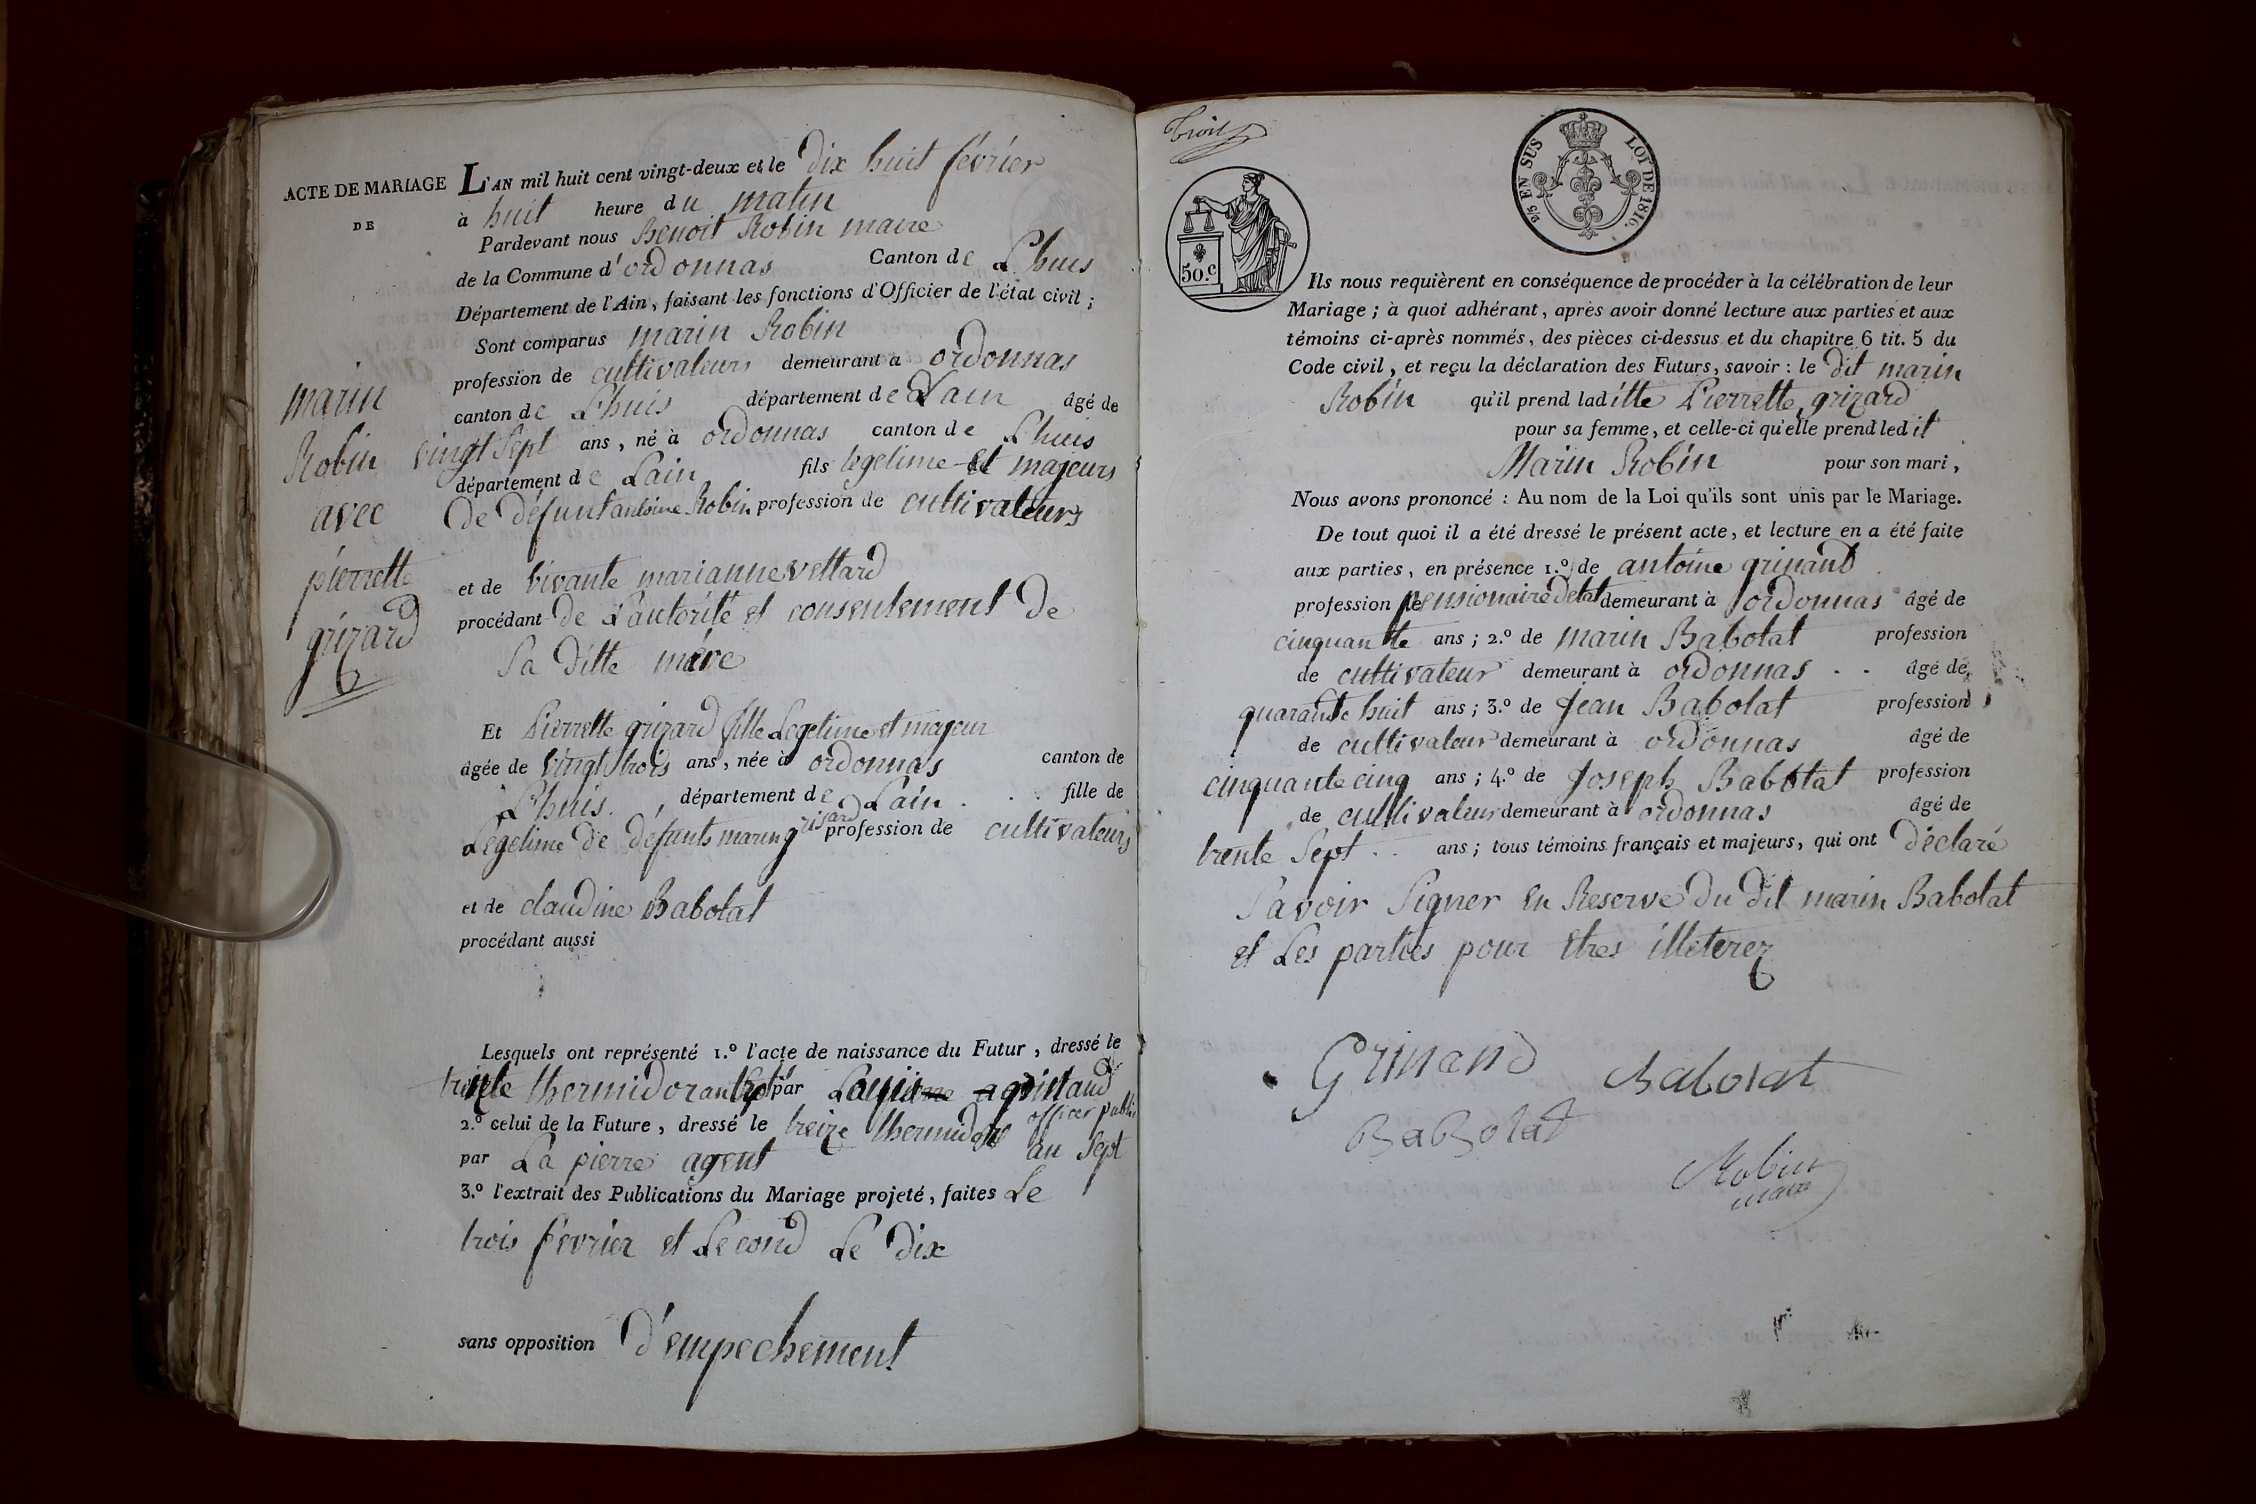 ACTE DE MARIAGE
DE
marin
Robin
avec
pierrette
grizard
L'AN mil huit cent vingt-deux et le dix huit février
à huit heure du matin
Pardevant nous Benoit Robin maire
de la Commune d'ordonnas Canton de Lhuis
Département de l'Ain, faisant les fonctions d'Officier de l'état civil ;
Sont comparus marin Robin
profession de cultivateurs demeurant a ordonnas
canton de Lhuis département de Lain âgé de
vingt Sept ans, né à ordonnas canton de Lhuis
département de Lain fils legetime et majeurs
de défunt antoine Robin profession de cultivateurs
et de vivante marianne vettard
procédant de Lautorité et consentement de
Sa ditte mère
Et Pierrette grizard fille Legetime et majeur
âgée de vingt trois ans, née à ordonnas canton de
Lhuis. , département de Lain . . . fille de
Legetime de défunts marin grisard profession de cultivateurs
et de claudine Babolat
procédant aussi
Lesquels ont représenté 1.º l'acte de naissance du Futur, dressé le
thermidor par
officier public
2.º celui de la Future, dressé le treize thermidor an Sept
par La pierre agent
3.º l'extrait des Publications du Mariage projeté, faites Le
trois février et Second Le dix
sans opposition d'empechement
Troit
50.c
2/5 EN SUS LOI DE 1816.
Ils nous requièrent en conséquence de procéder à la célébration de leur
Mariage ; à quoi adhérant, après avoir donné lecture aux parties et aux
témoins ci-après nommés, des pièces ci-dessus et du chapitre 6 tit. 5 du
Code civil, et reçu la déclaration des Futurs, savoir : le dit marin
Robin qu'il prend laditte Pierrette grizard
pour sa femme, et celle-ci qu'elle prend ledit
Marin Robin pour son mari,
Nous avons prononcé : Au nom de la Loi qu'ils sont unis par le Mariage.
De tout quoi il a été dressé le présent acte, et lecture en a été faite
aux parties, en présence 1.º de antoine grinand
profession de pensionaire detat demeurant à ordonnas âgé de
cinquante ans ; 2.º de marin Babolat profession
de cultivateur demeurant à ordonnas . . âgé de
quarante huit ans ; 3.º de Jean Babolat profession
de cultivateur demeurant à ordonnas âgé de
cinquante cinq ans ; 4.º de Joseph Babolat profession
de cultivateur demeurant à ordonnas âgé de
trente Sept . . ans ; tous témoins français et majeurs, qui ont déclaré
Savoir Signer en Reserve du dit marin Babolat
et Les parties pour etres illeterez
Grinand
Babolat
BaBolat
Robin
maire